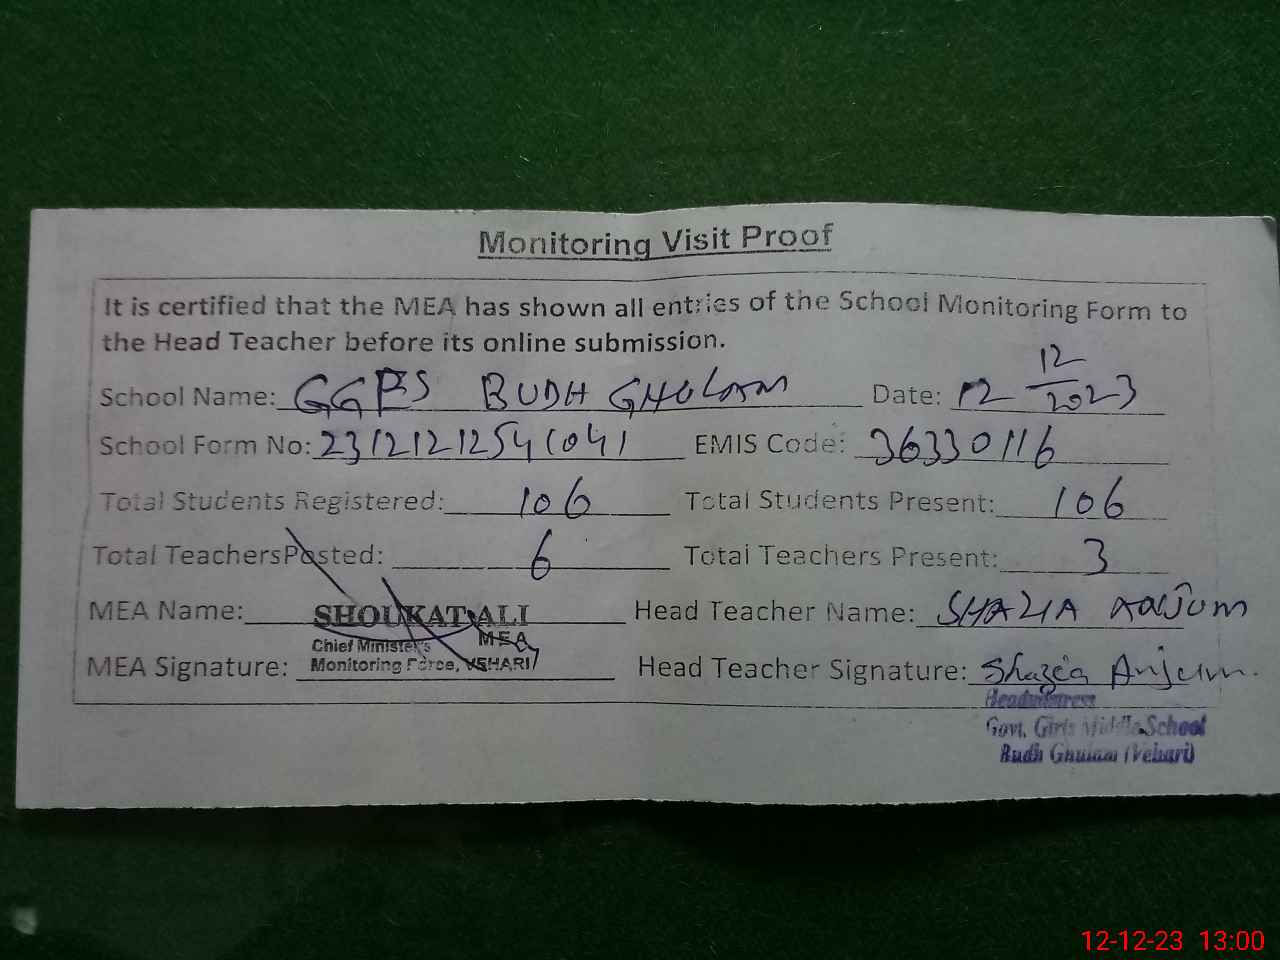 Monitoring Visit Proof
It is certified that the MEA has shown all entries of the School Monitoring Form to
the Head Teacher before its online submission.
School Name: GGES BUDH GHULAM Date: 12 12/2023
School Form No: 23121212541041 EMIS Code: 36330116
Total Students Registered: 106 Total Students Present: 106
Total TeachersPosted: 6 Total Teachers Present: 3
MEA Name: SHOUKAT ALI Head Teacher Name: SHAZIA ANJUM
MEA
Chief Minister's
MEA Signature: Monitoring Force, VEHARI Head Teacher Signature: Shazia Anjum.
Headmistress
Govt. Girls Middle School
Budh Ghulam (Vehari)
12-12-23 13:00